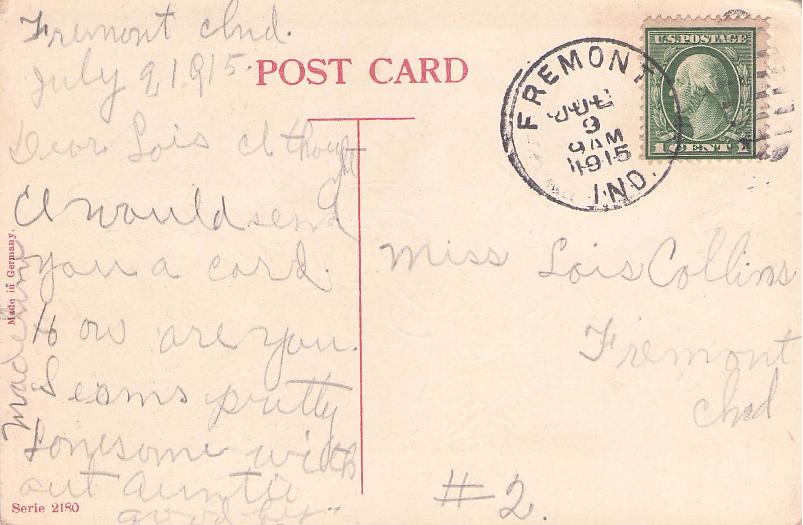 Fremont Ind.
July 9 1915
POST CARD
Dear Lois I thought
I would send
you a card.
How are you.
Seams pretty
lonesome with
out auntie
good by
Madeline
Made in Germany.
Serie 2180
FREMONT
JUL
9
9 AM
1915
IND.
U.S. POSTAGE
1 CENT 1
Miss Lois Collins
Fremont
Ind
#2.